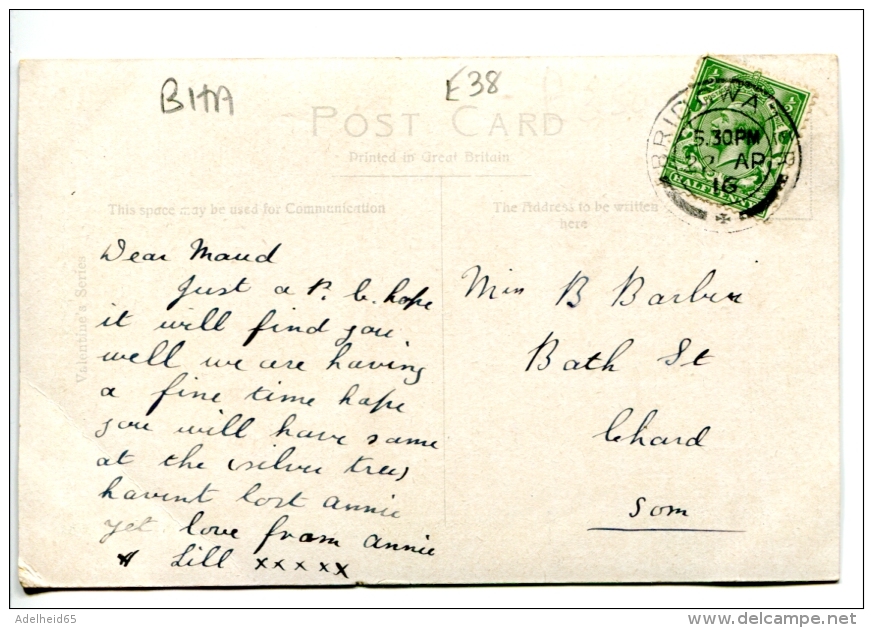 BHA
E38
POST CARD
Printed in Great Britain
This space may be used for Communication
The Address to be written
here
Valentine's Series
BRIDGWATER
5.30PM
AP
16
HALFPENNY
Dear Maud
Just a P. C. hope
it will find you
well we are having
a fine time hope
you will have same
at the (silver tree)
havent lost annie
yet. love from annie
Lill xxxxx
Miss B
Bath St
Chard
Som
Adelheid65
delcampe.net